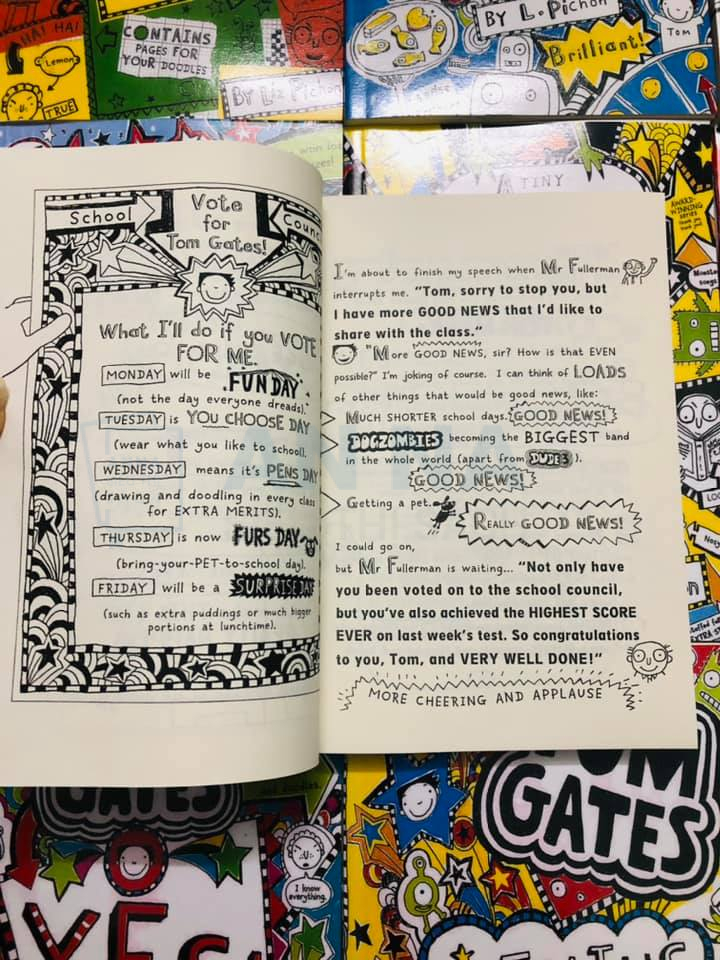 HA! HA!
Lemon
TRUE
CONTAINS
PAGES FOR
YOUR DOODLES
BY Liz Pichon
BY L. Pichon
Brilliant!
Tom
A TINY
AWARD-
WINNING
series
Monster
songs
School
Vote
for
Tom Gates!
What I'll do if you VOTE
FOR ME.
MONDAY will be FUN DAY
(not the day everyone dreads).
TUESDAY is YOU CHOOSE DAY
(wear what you like to school).
WEDNESDAY means it's PENS DAY
(drawing and doodling in every class
for EXTRA MERITS).
THURSDAY is now FURS DAY
(bring-your-PET-to-school day).
FRIDAY will be a SURPRISE DAY
(such as extra puddings or much bigger
portions at lunchtime).
I'm about to finish my speech when Mr Fullerman
interrupts me. "Tom, sorry to stop you, but
I have more GOOD NEWS that I'd like to
share with the class."
"More GOOD NEWS, sir? How is that EVEN
possible?" I'm joking of course. I can think of LOADS
of other things that would be good news, like:
MUCH SHORTER school days. GOOD NEWS!
DOGZOMBIES becoming the BIGGEST band
in the whole world (apart from DUDE3).
GOOD NEWS!
Getting a pet.
REALLY GOOD NEWS!
I could go on,
but Mr Fullerman is waiting... "Not only have
you been voted on to the school council,
but you've also achieved the HIGHEST SCORE
EVER on last week's test. So congratulations
to you, Tom, and VERY WELL DONE!"
MORE CHEERING AND APPLAUSE
GATES
and doodles.
I know
everything.
YES
TOM
GATES